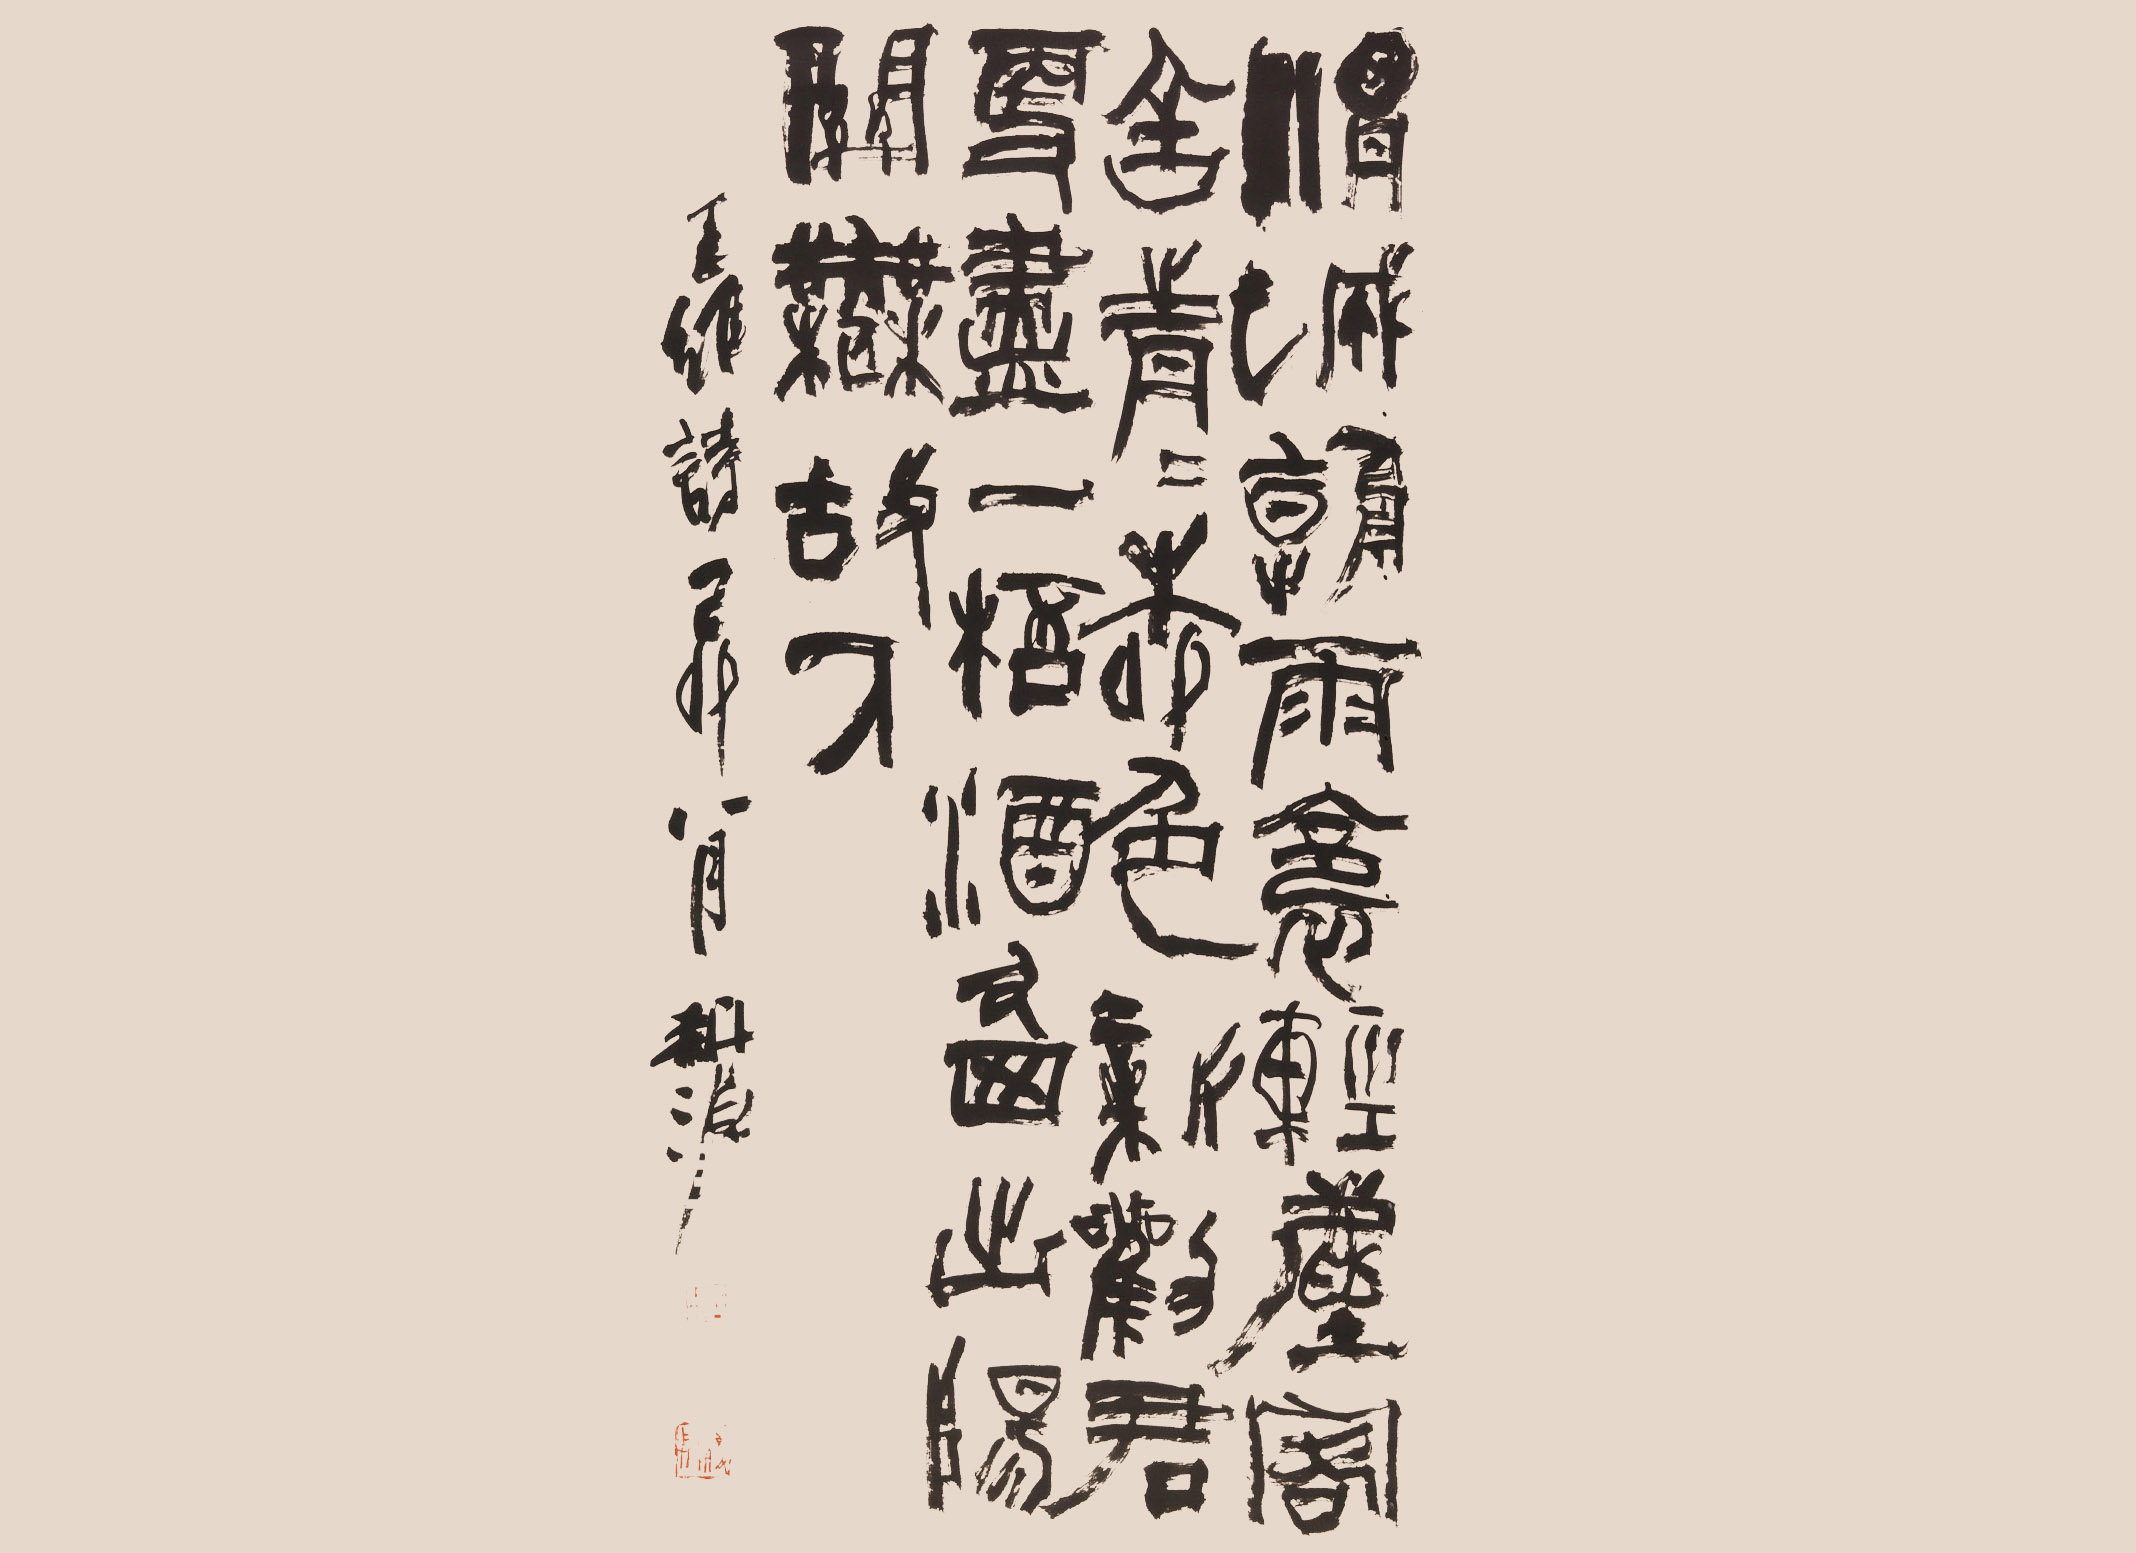 渭城朝雨裛輕塵客
舍青〻柳色新勸君
更盡一桮酒西出陽
關無故人
王維詩己卯八月